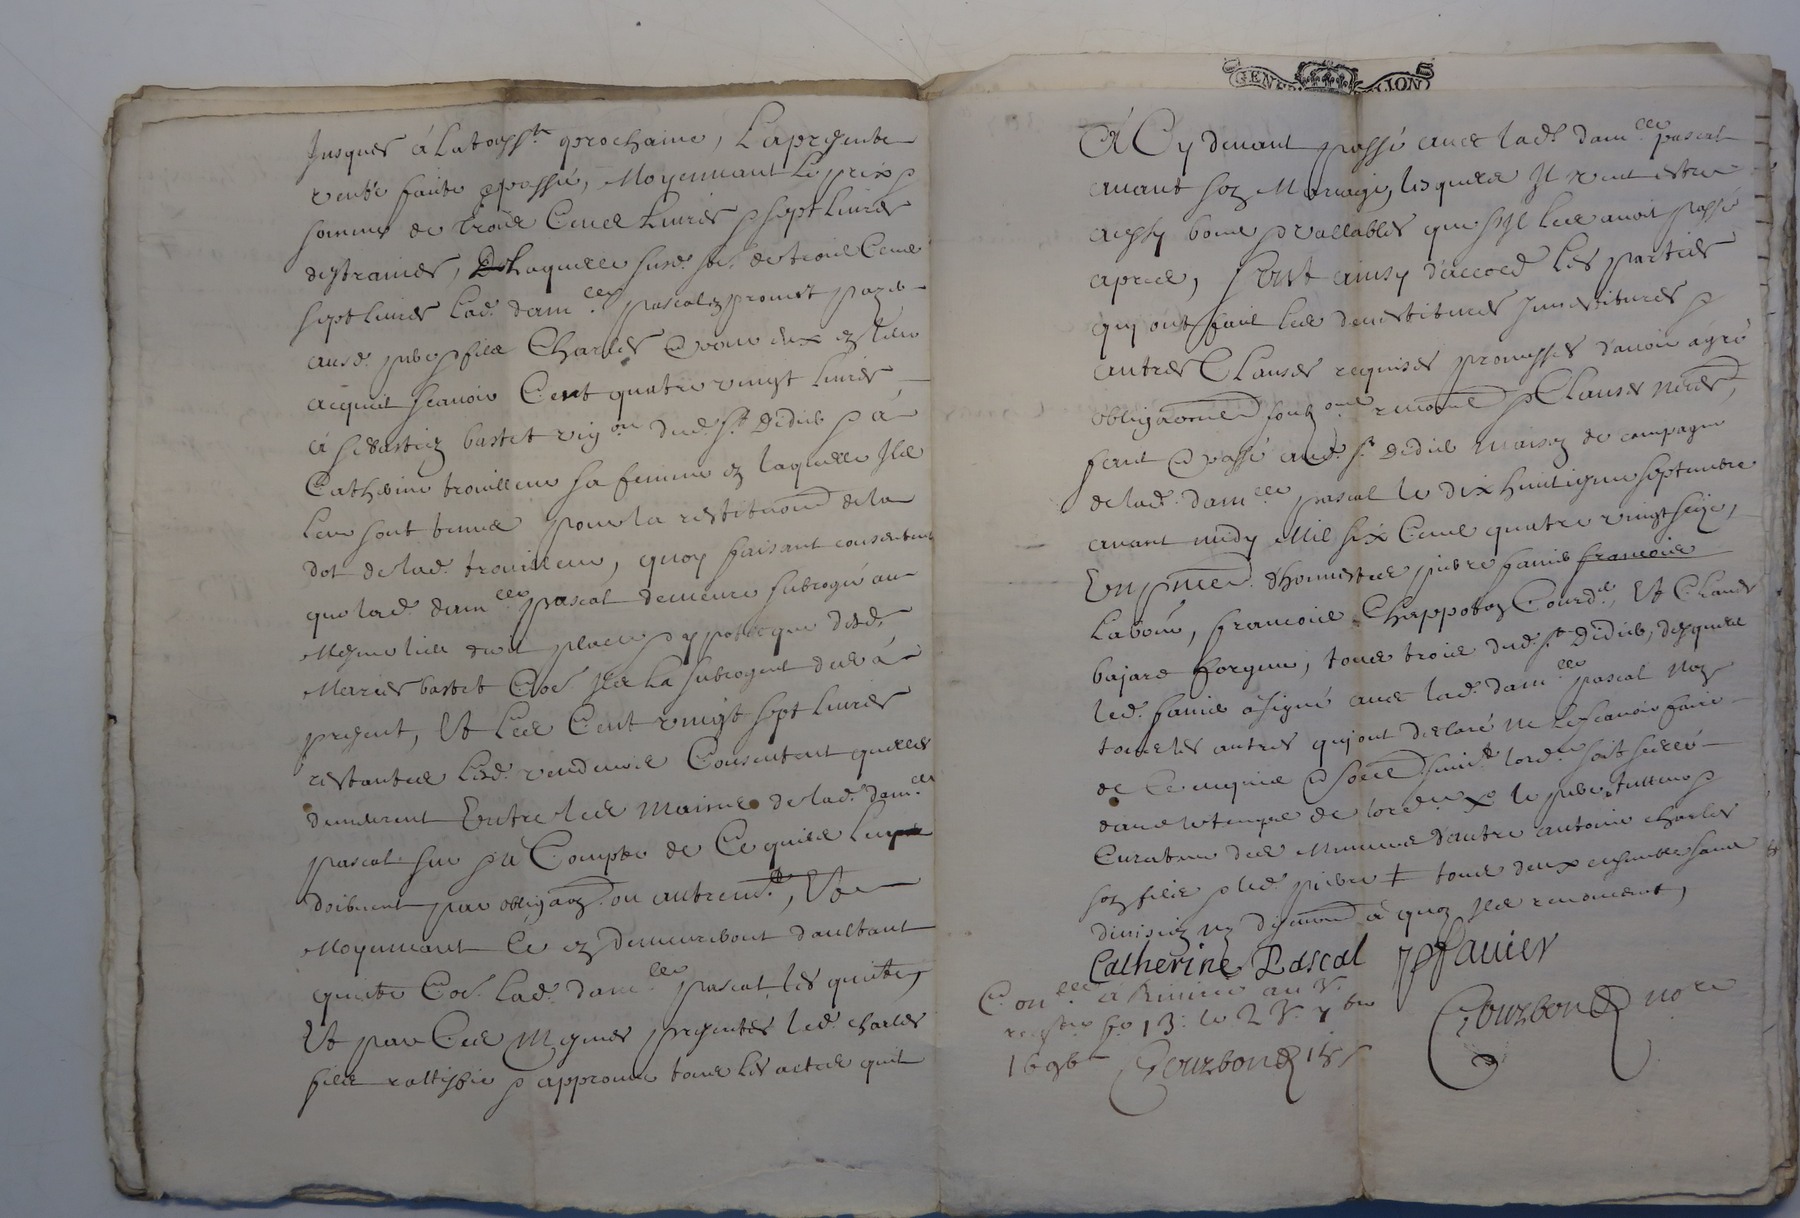 Jusques á La touss.ts prochaine, La presente
vente faite & passée, Moyennant Le prix &
somme de trois Cens Livres & sept Livres
destraines, De Laquelle susd. so.e de trois Cens
sept Livres Lad. dam.lle pascal promet payer
Charles
acquit scavoir Cent quatre vingt Livres
á sebastien bastet vig.on dud. s.t Didier & á
Catherine trouilleux sa femme en laquelle Ils
Leur sont tenus pour la restitution de la
dot de lad. trouilleux, quoy faisant consentent
que lad. dam.lle pascal demeure subrogée au
Mesme lieu droit place & yppotecque desd.
Mariés bastet Co.e Ils La subrogent dés á
present, Et Les Cent vingt sept Livres
restantes Lesd. vendeurs Consentent quelles
demeurent Entre les mains de lad. dam.lle
pascal sur & á Compte de Ce quils Luy
doibvent par obligaon ou autrem.t, Et
Moyennant Ce en demeureront daultant
quitte Co.e Lad. dam.lle pascal les quitte,
Et par Ces Mesmes presentes led. charles
fils rattiffie & approuve tous Les actes quil
A Cy devant passé avec lad. dam.lle pascal
avant son Mariage, lesquels Il veut estre
aussy bons & vallables que syl Les avoit passé
apres, sont ainsy d'accord Les parties
qui ont fait Les devestitures Investitures &
autres Clauses requises promesses d'avoir agré
obligaons soub.ons renon.ons & Clauses necess.
fait & passé aud. s.t Didier maison de campagne
de lad. dam.lle pascal le dix huitiesme septembre
avant midy Mil six Cens quatre vingt seize,
En p.nce d'honnestes pierre favier francois
Labour, francois Chappoton Courd.r, Et Claude
bajard forgeur, tous trois dud. s.t Didier, desquels
led. favier a signé avec lad. dam.lle pascal Non
tous les autres qui ont declaré ne le scavoir faire
de Ce enquis & soit scellé
dans le temps de lord.ce le pierre tutteur &
Curateur des Mineurs d'autre antoine charles
son fils & led. pierre + tous deux ensemble sans
division ny á quoy Ils renoncent,
Catherine Pascal favier
C. on.llé á
reg.tre f.o 13. le 23. 7.bre
1696
Courbon
Courbon no.re
GENER LION